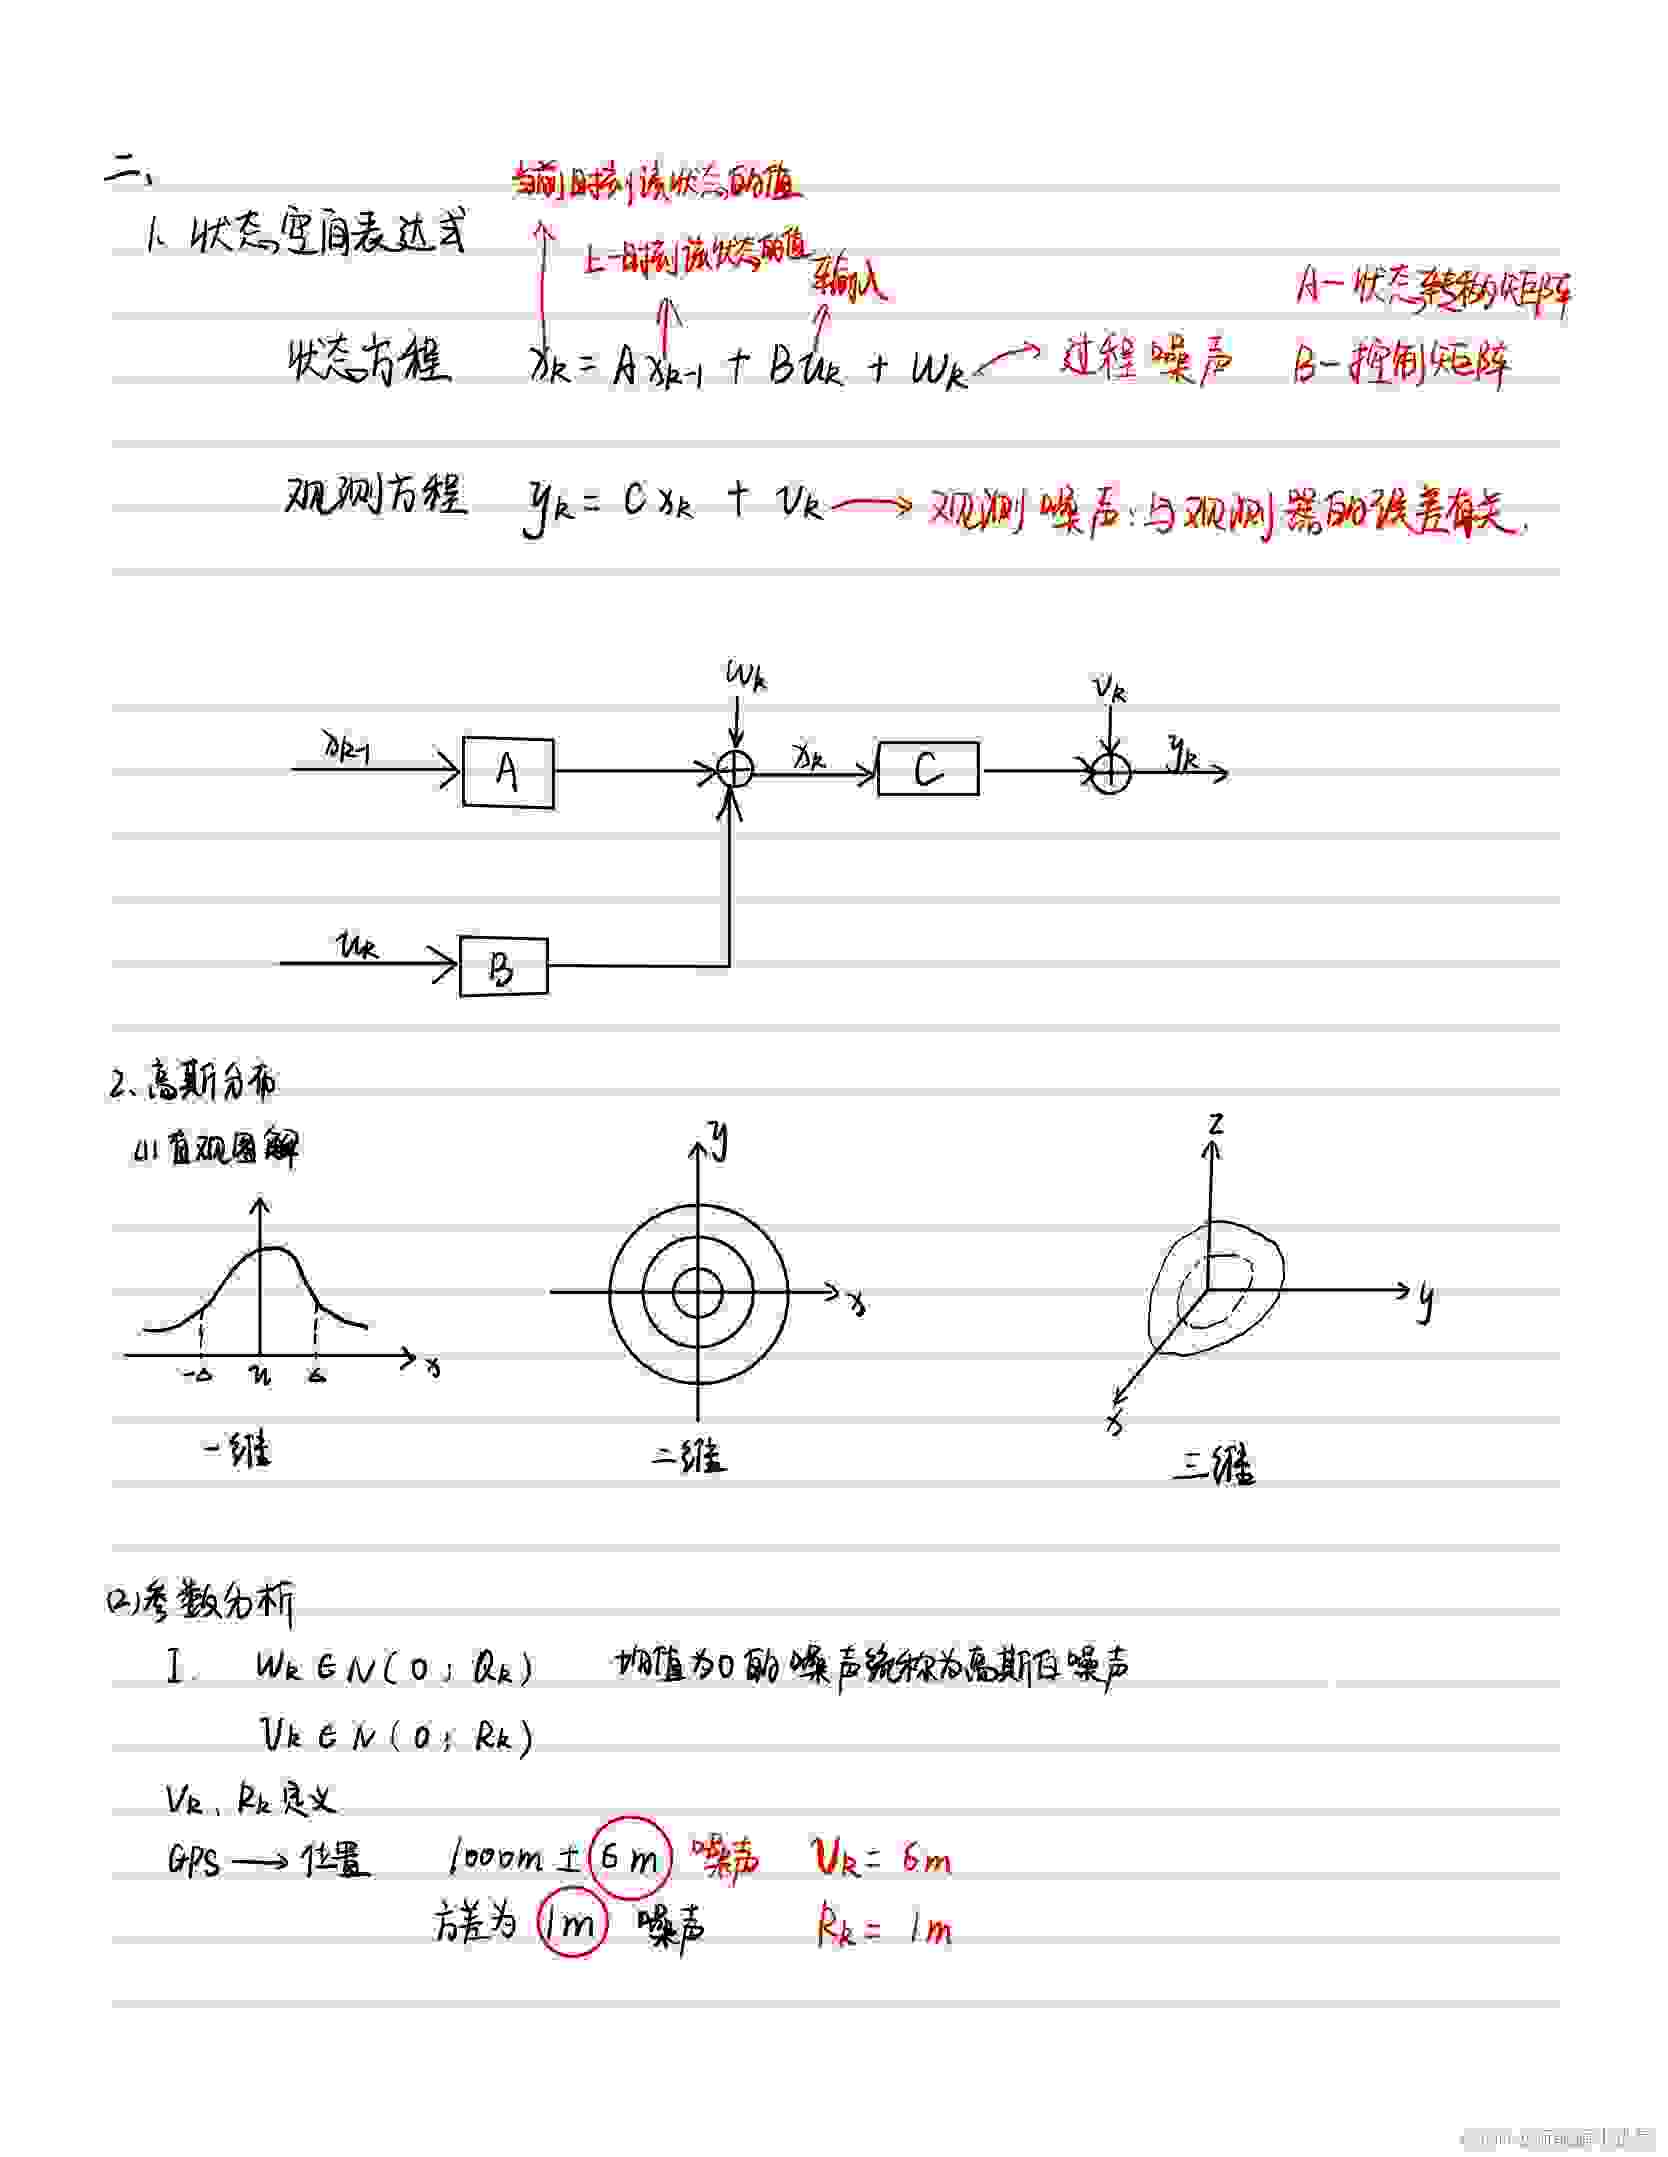 二、
1. 状态空间表达式
当前时刻该状态的值
上一时刻该状态的值
输入
A-状态转移矩阵
状态方程 xk = Axk-1 + Buk + wk → 过程噪声 B-控制矩阵
观测方程 yk = Cxk + vk → 观测噪声:与观测器的误差有关.
wk
vk
xk-1 A xk C yk
uk B
2、高斯分布
(1) 直观图解
y
z
x
y
-σ u σ x
x
一维 二维 三维
(2) 参数分析
I. Wk ∈ N(0; Qk) 均值为0的噪声统称为高斯白噪声
Vk ∈ N(0; Rk)
Vk、Rk定义
GPS → 位置 1000m ± 6m 噪声 Vk = 6m
方差为 1m 噪声 Rk = 1m